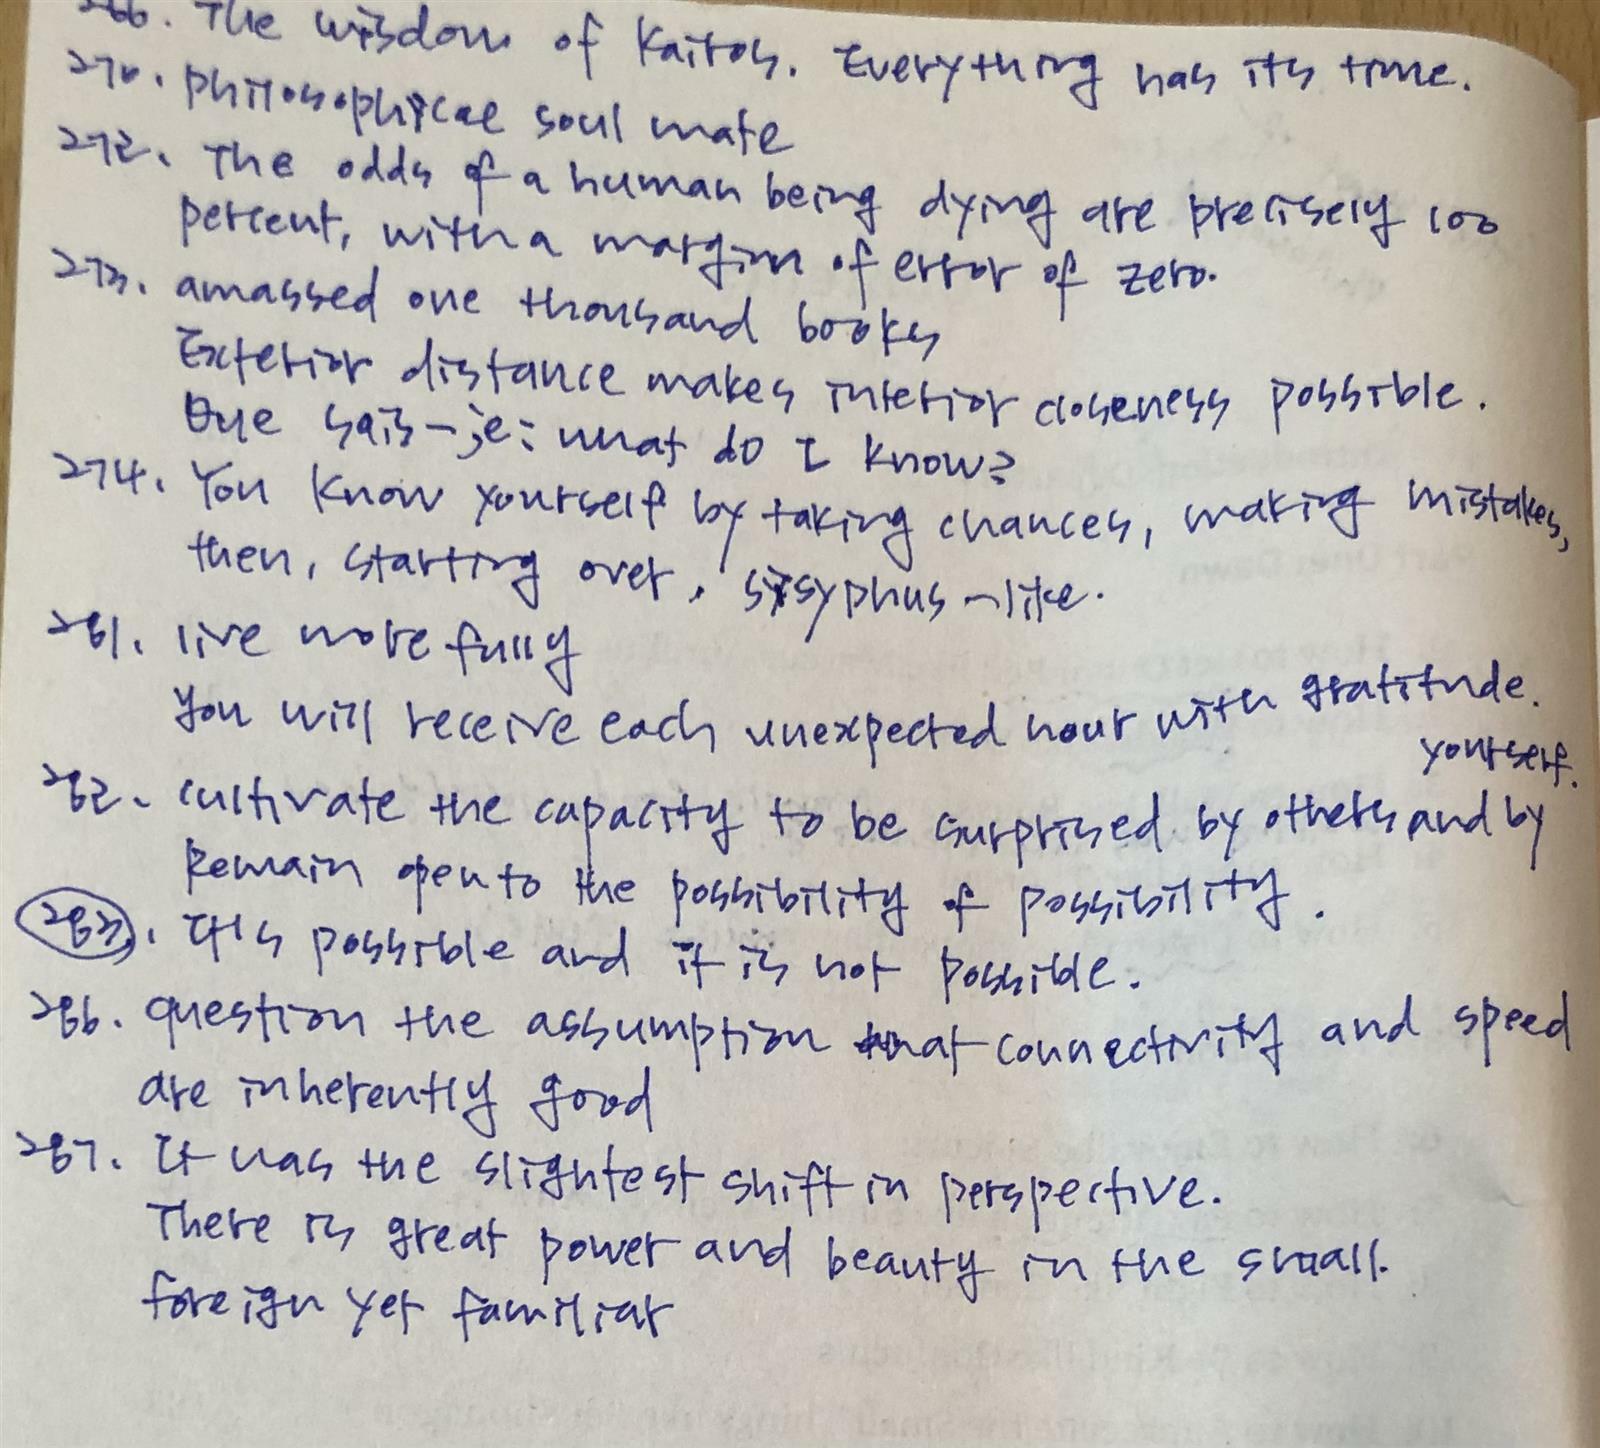 266. The wisdom of Kairos. Everything has its time.
270. philosophical soul mate
272. The odds of a human being dying are precisely 100
percent, with a margin of error of zero.
273. amassed one thousand books
Exterior distance makes interior closeness possible.
Que sais-je: what do I know?
274. You know yourself by taking chances, making mistakes,
then, starting over, sisyphus-like.
281. live more fully
You will receive each unexpected hour with gratitude.
282. cultivate the capacity to be surprised by others and by yourself.
Remain open to the possibility of possibility.
283. It is possible and it is not possible.
286. question the assumption that connectivity and speed
are inherently good
287. It was the slightest shift in perspective.
There is great power and beauty in the small.
foreign yet familiar